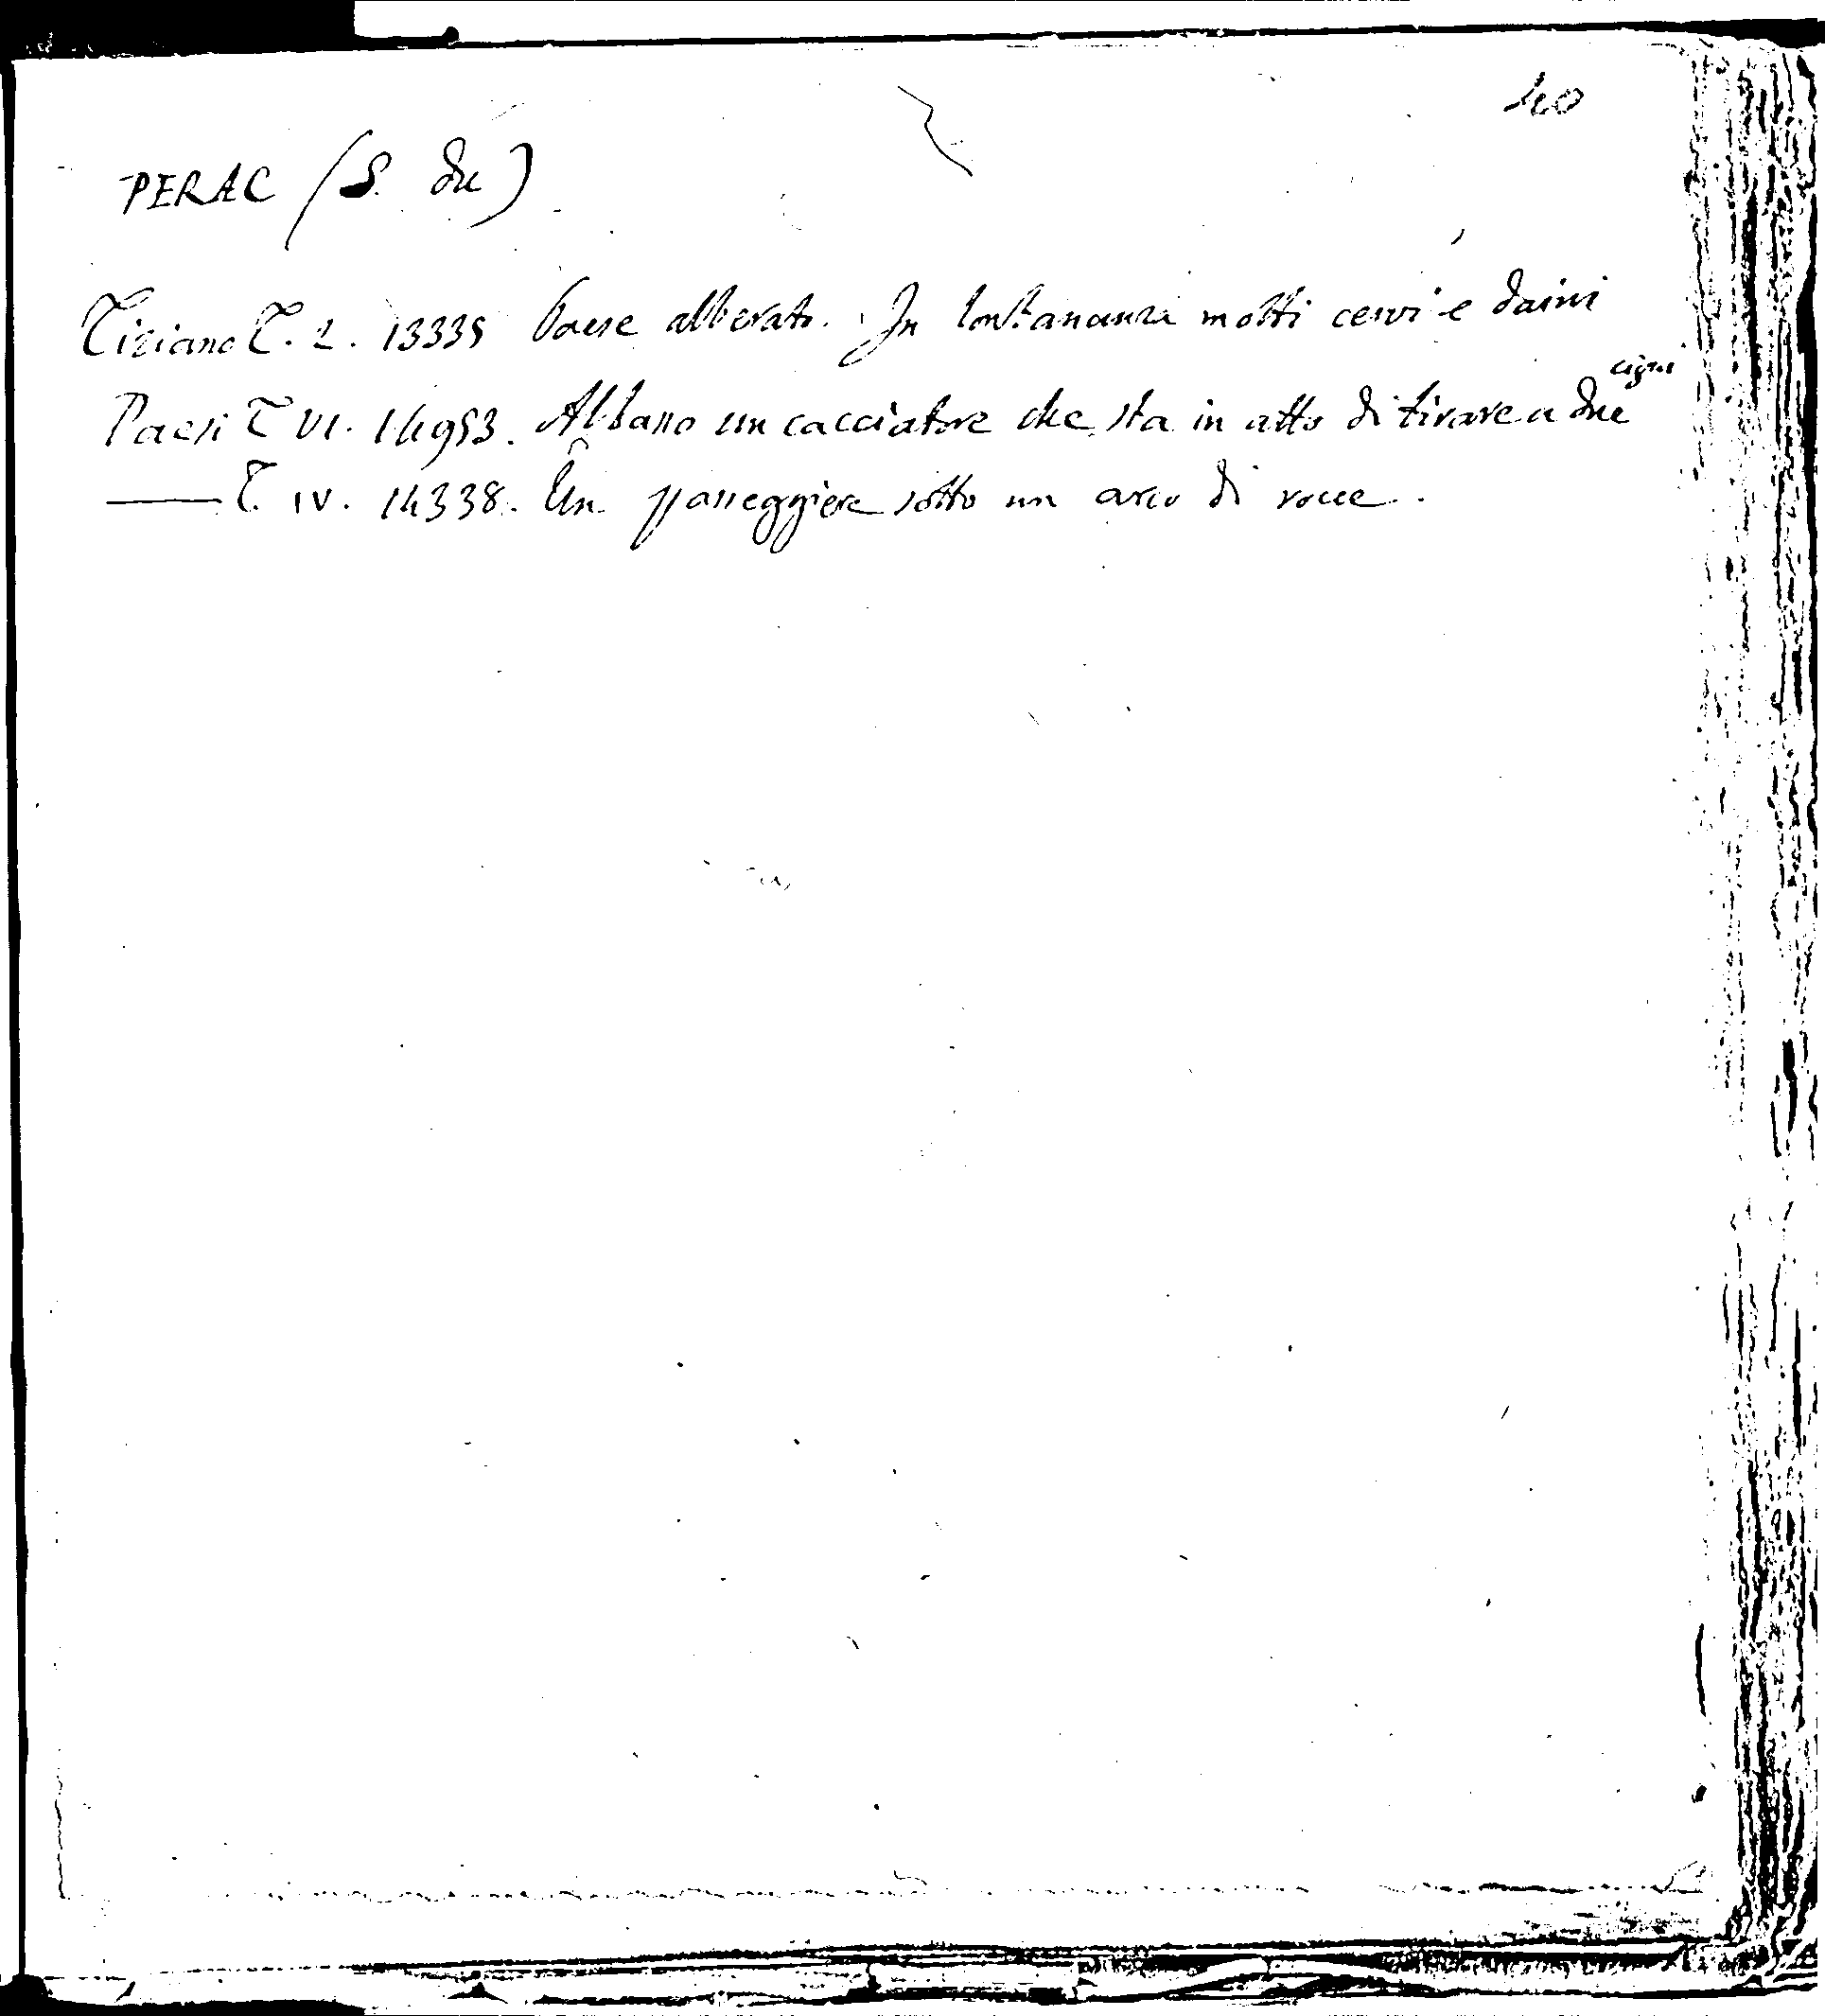 40
PERAC (S. du)
Tiziano T. 2. 13335 Paese alberato. In lontananza molti cervi e daini
Paesi T VI. 14953. Albano un cacciatore che sta in atto di tirare a due cigni
—— T. IV. 14338. Un passeggiere sotto un arco di rocce.